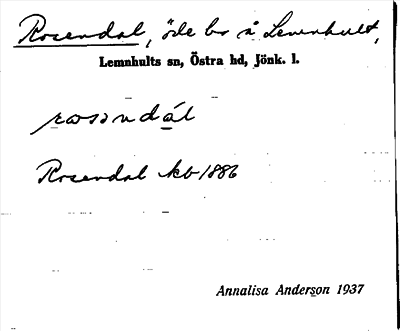 Rosendal, öde bs å Lemnhult,
Lemnhults sn, Östra hd, Jönk. l.
rωsəndál
Rosendal kb 1886
Annalisa Anderson 1937